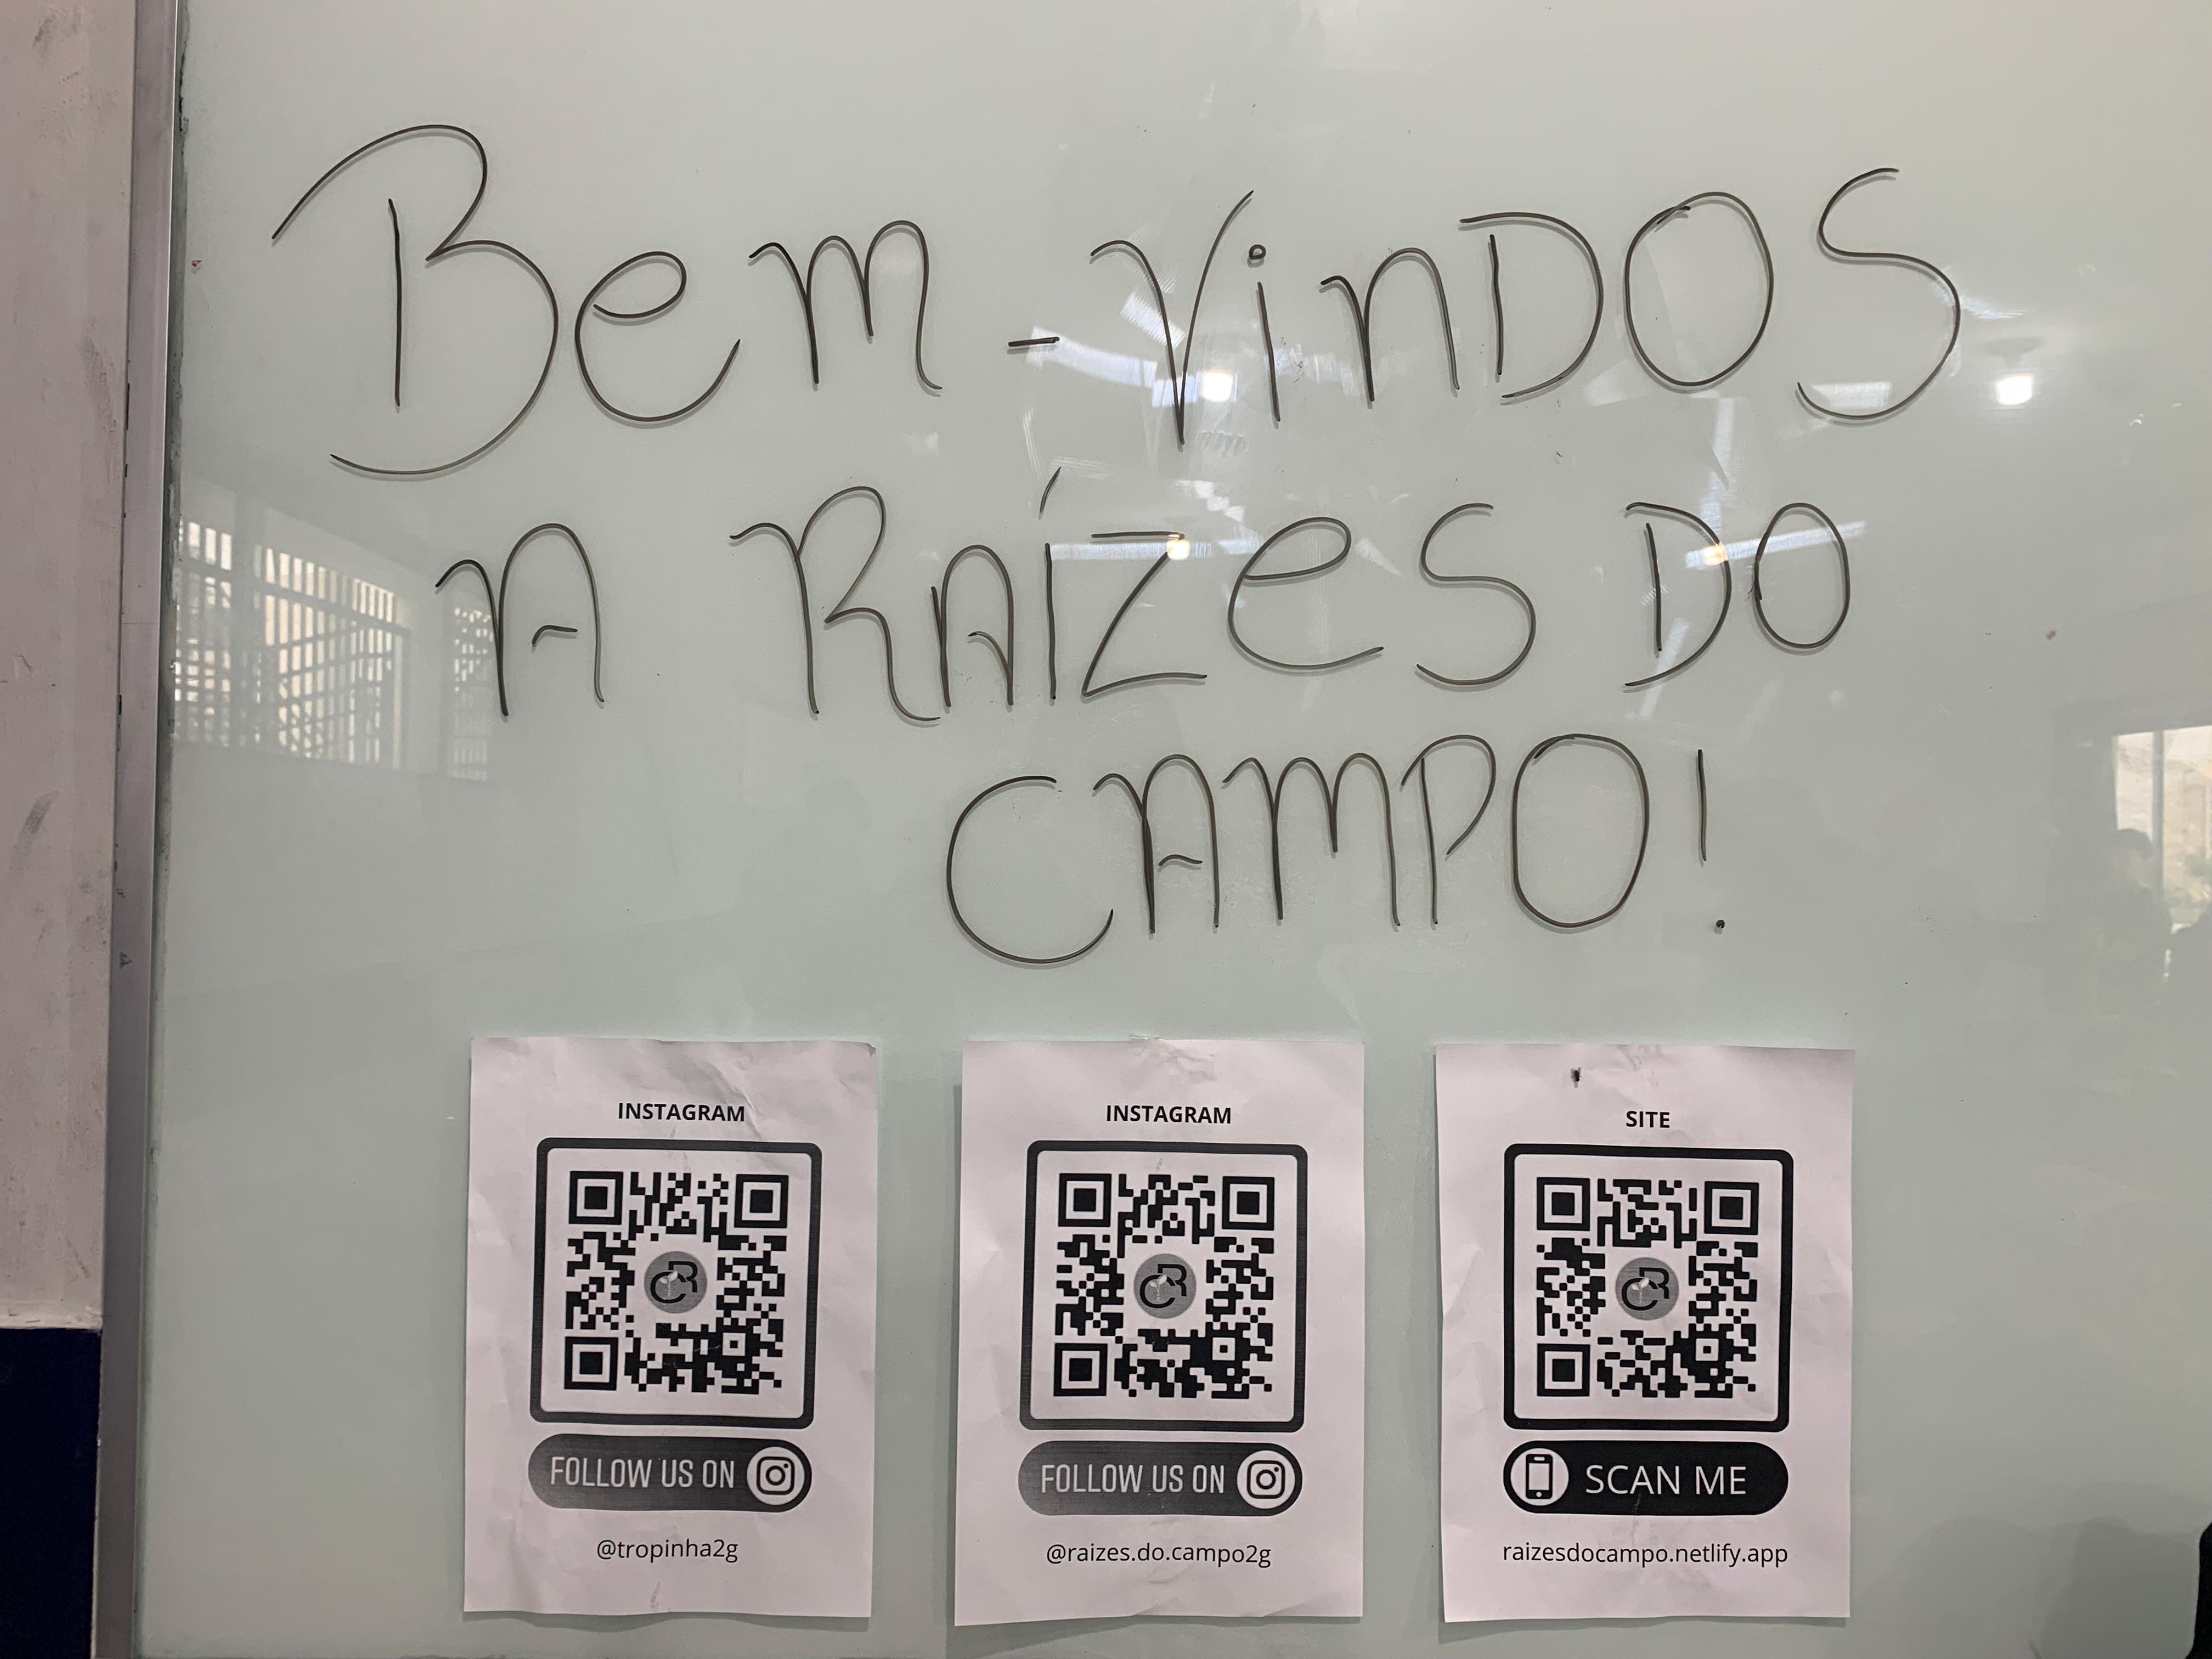 Bem-VinDOS
A RAÍZeS DO
CAMPO!
INSTAGRAM
CR
FOLLOW US ON
@tropinha2g
INSTAGRAM
CR
FOLLOW US ON
@raizes.do.campo2g
SITE
CR
SCAN ME
raizesdocampo.netlify.app